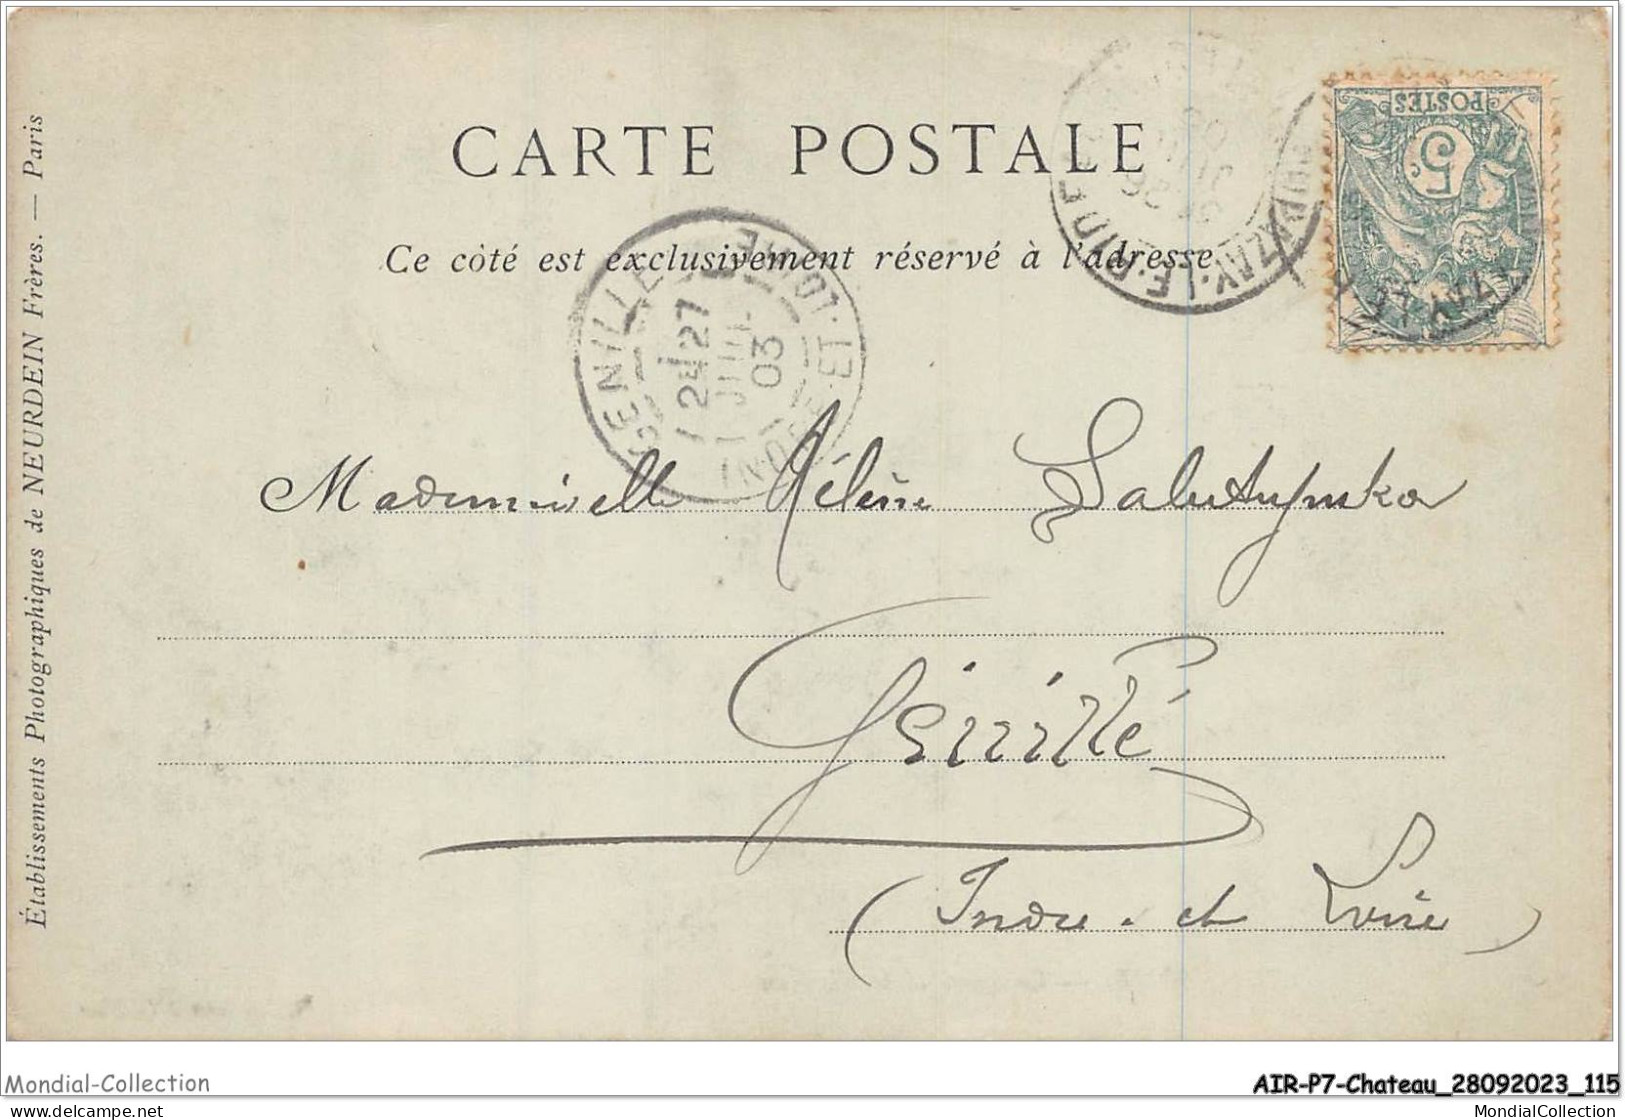 CARTE POSTALE
Ce côté est exclusivement réservé à l'adresse
Établissements Photographiques de NEURDEIN Frères. — Paris
POSTES
5
AZAY-LE-RIDEAU
GENILLÉ
INDRE-ET-LOIRE
27
JUIL
03
Mademoiselle Hélène
Genillé
(Indre-et Loire)
Mondial-Collection
AIR-P7-Chateau_28092023_115
www.delcampe.net
MondialCollection